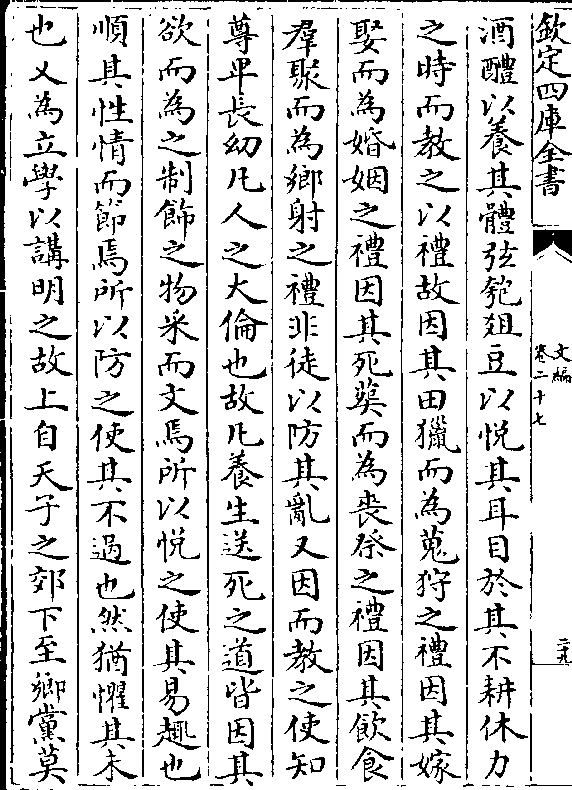 欽定四庫全書
文編
卷二十七
二九
酒醴以養其體弦匏爼豆以悦其耳目於其不耕休力
之時而教之以禮故因其田獵而為蒐狩之禮因其嫁
娶而為婚姻之禮因其死𦵏而為喪祭之禮因其飲食
羣聚而為鄉射之禮非徒以防其亂又因而教之使知
尊卑長幼凡人之大倫也故凡養生送死之道皆因其
欲而為之制飾之物采而文焉所以悦之使其易趣也
順其性情而節焉所以防之使其不過也然猶懼其未
也又為立學以講明之故上自天子之郊下至鄉黨莫